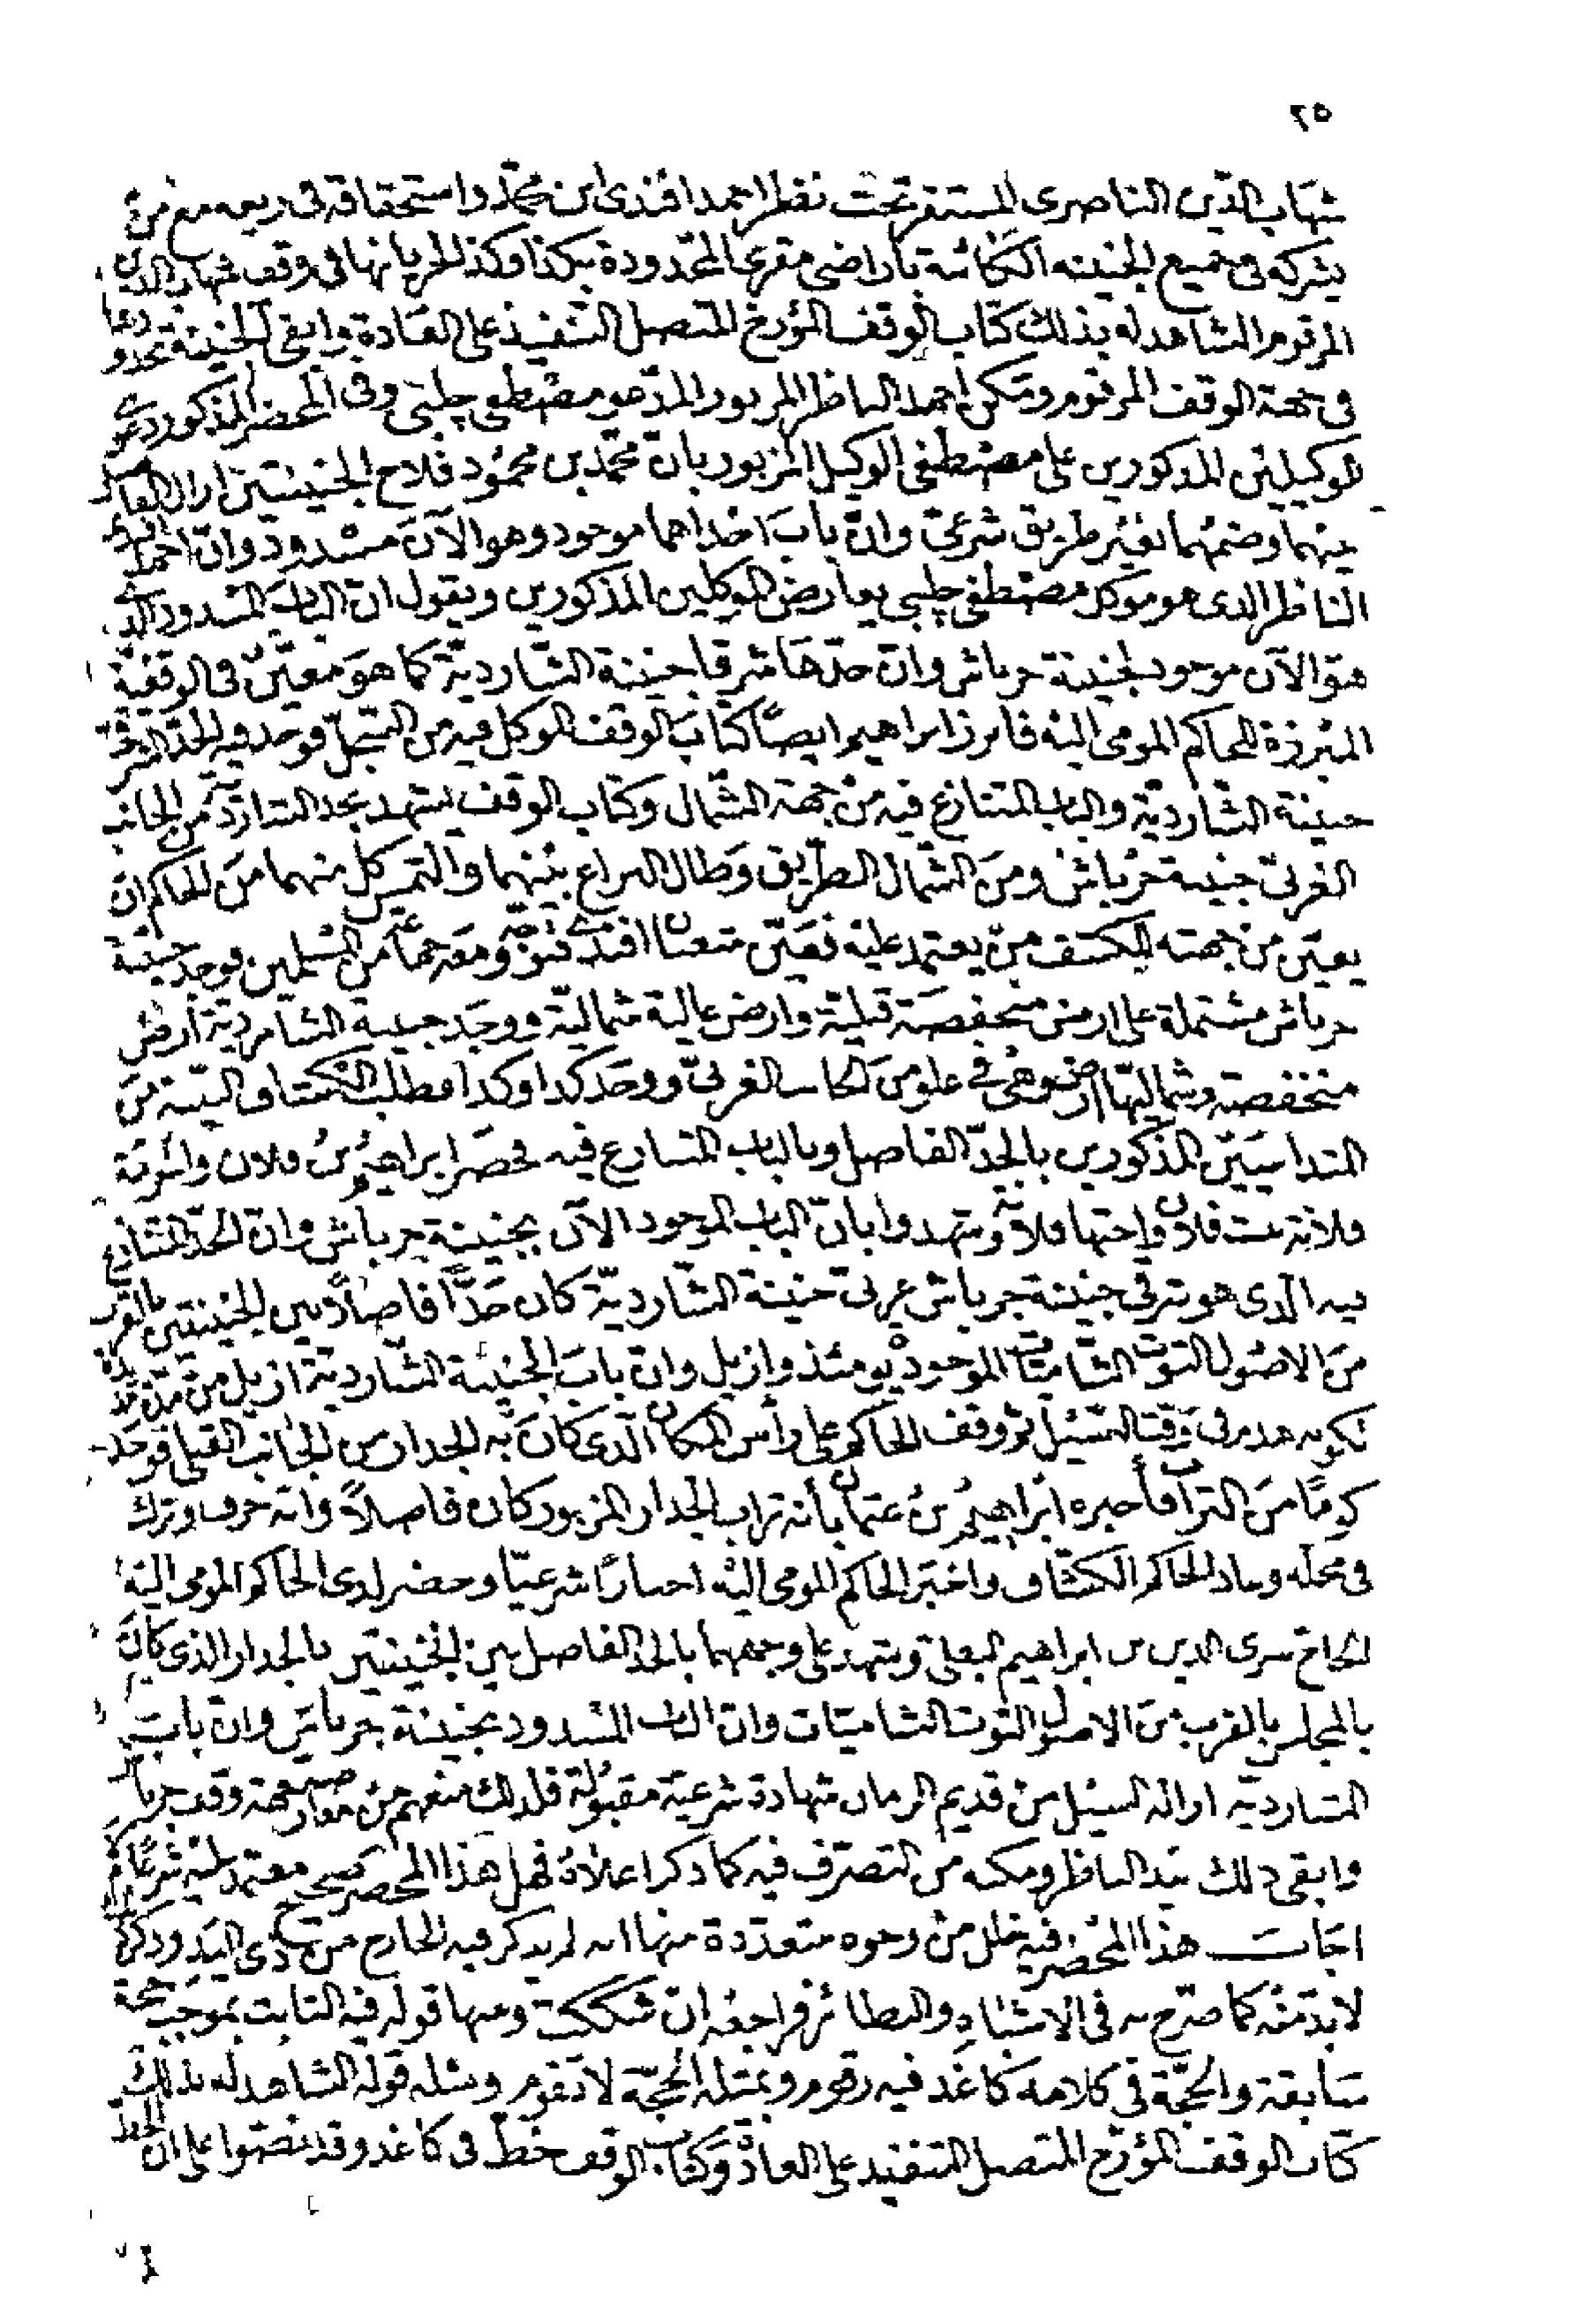 ٢٥
شهاب الدين الناصرى المستقر تحت نظر احمد افندى ابن محمد واستحقاقه فى ريعه مع من
يشركه فى جميع الجنينه الكائنة باراضى مقرى المحدودة بكذا وكذا الجريانها فى وقف شهاب الدين
المرقوم الشاهد له بذلك كتاب الوقف المؤرخ المتصل التنفيذ على العادة وابقى الجنينة بحدودها
فى جهة الوقف المرقوم ومكن احمد الناظر المزبور المدعو مصطفى جلبى وفى المحضر المذكور دعوى
الوكيلين المذكورين على مصطفى الوكيل المزبور بان محمد بن محمود فلاح الجنينتين ازال الفاصل
بينهما وضمهما بغير طريق شرعى وان باب احداهما موجود وهو الآن مسدود وان احمد افندى
الناظر الذى هو موكل مصطفى جلبى يعارض الوكيلين المذكورين ويقول ان الباب المسدود الذى
هو الآن موجود لجنينة جرباش وان حدها شرقا جنينة الشاردية كما هو معين فى الوقفية
المبرزة للحاكم المومى اليه فابرز ابراهيم ايضا كتاب الوقف الموكل فيه من السجل فوجد فيه الحد الشرقى
جنينة الشاردية والباب المتنازع فيه من جهة الشمال وكتاب الوقف يشهد بحد الشاردية من الجانب
الغربى جنينة جرباش ومن الشمال الطريق وطال النزاع بينهما والتمس كل منهما من الحاكم ان
يعين من جهته للكشف من يعتمد عليه فعين شعبان افندى فتوجه ومعه جماعة من المسلمين فوجد جنينة
جرباش مشتملة على ارض منخفضة قبلية وارض عالية شمالية ووجد جنينة الشاردية ارض
منخفضة وشماليها ارض وهى فى علو من الجانب الغربى ووجد كذا وكذا فطلب الكشاف البينة من
المتداعيين المذكورين بالحد الفاصل وبالباب المتنازع فيه فحضر ابراهيم بن فلان والحرمة
فلانة بنت فلان واختها فلانة وشهدوا بان الباب الموجود الآن بجنينة جرباش وان الحد المتنازع
فيه الذى هو شرقى جنينة جرباش غربى جنينة الشاردية كان حدا فاصلا بين الجنينتين بالقرب
من الاصول التوت الشاميات الموجود يومئذ وازيل وان باب الجنينة الشاردية ازيل من مدة مديدة
لكونه هدم فى وقت السيل ثم وقف الحاكم على رأس المكان الذى كان به الجدار من الجانب القبلى فوجد
كوما من التراب فأخبره ابراهيم بن عثمان بأنه تراب الجدار المزبور كان فاصلا وانه حرف وترك
فى محله وعاد الحاكم الكشاف واخبر الحاكم المومى اليه اخبارا شرعيا وحضر لدى الحاكم المومى اليه
الحاج سرى الدين بن ابراهيم البعلى وشهد على وجههما بالحد الفاصل بين الجنينتين بالجدار الذى كان
بالمحل بالقرب من الاصول التوت الشاميات وان الباب المسدود بجنينة جرباش وان باب
الشاردية ازاله السيل من قديم الزمان شهادة شرعية مقبولة فلذلك منعهم من معارضة جهة وقف جرباش
وابقى ذلك بيد الناظر ومكنه من التصرف فيه كما ذكر اعلاه فهل هذا المحضر صحيح معتمد عليه شرعا ام لا
اجاب هذا المحضر فيه خلل من وجوه متعددة منها انه لم يذكر فيه الخارج من ذى اليد وذكره
لا بد منه كما صرح به فى الاشباه والنظائر فراجعه ان شككت ومنها قوله فيه الثابت بموجب حجة
سابقة والحجة فى كلامه كاغد فيه رقوم وبمثله الحجة لا تقوم ومثله قوله الشاهد له بذلك
كتاب الوقف المؤرخ المتصل التنفيذ على العادة وكتاب الوقف خط فى كاغد وقد نصوا على ان الخط